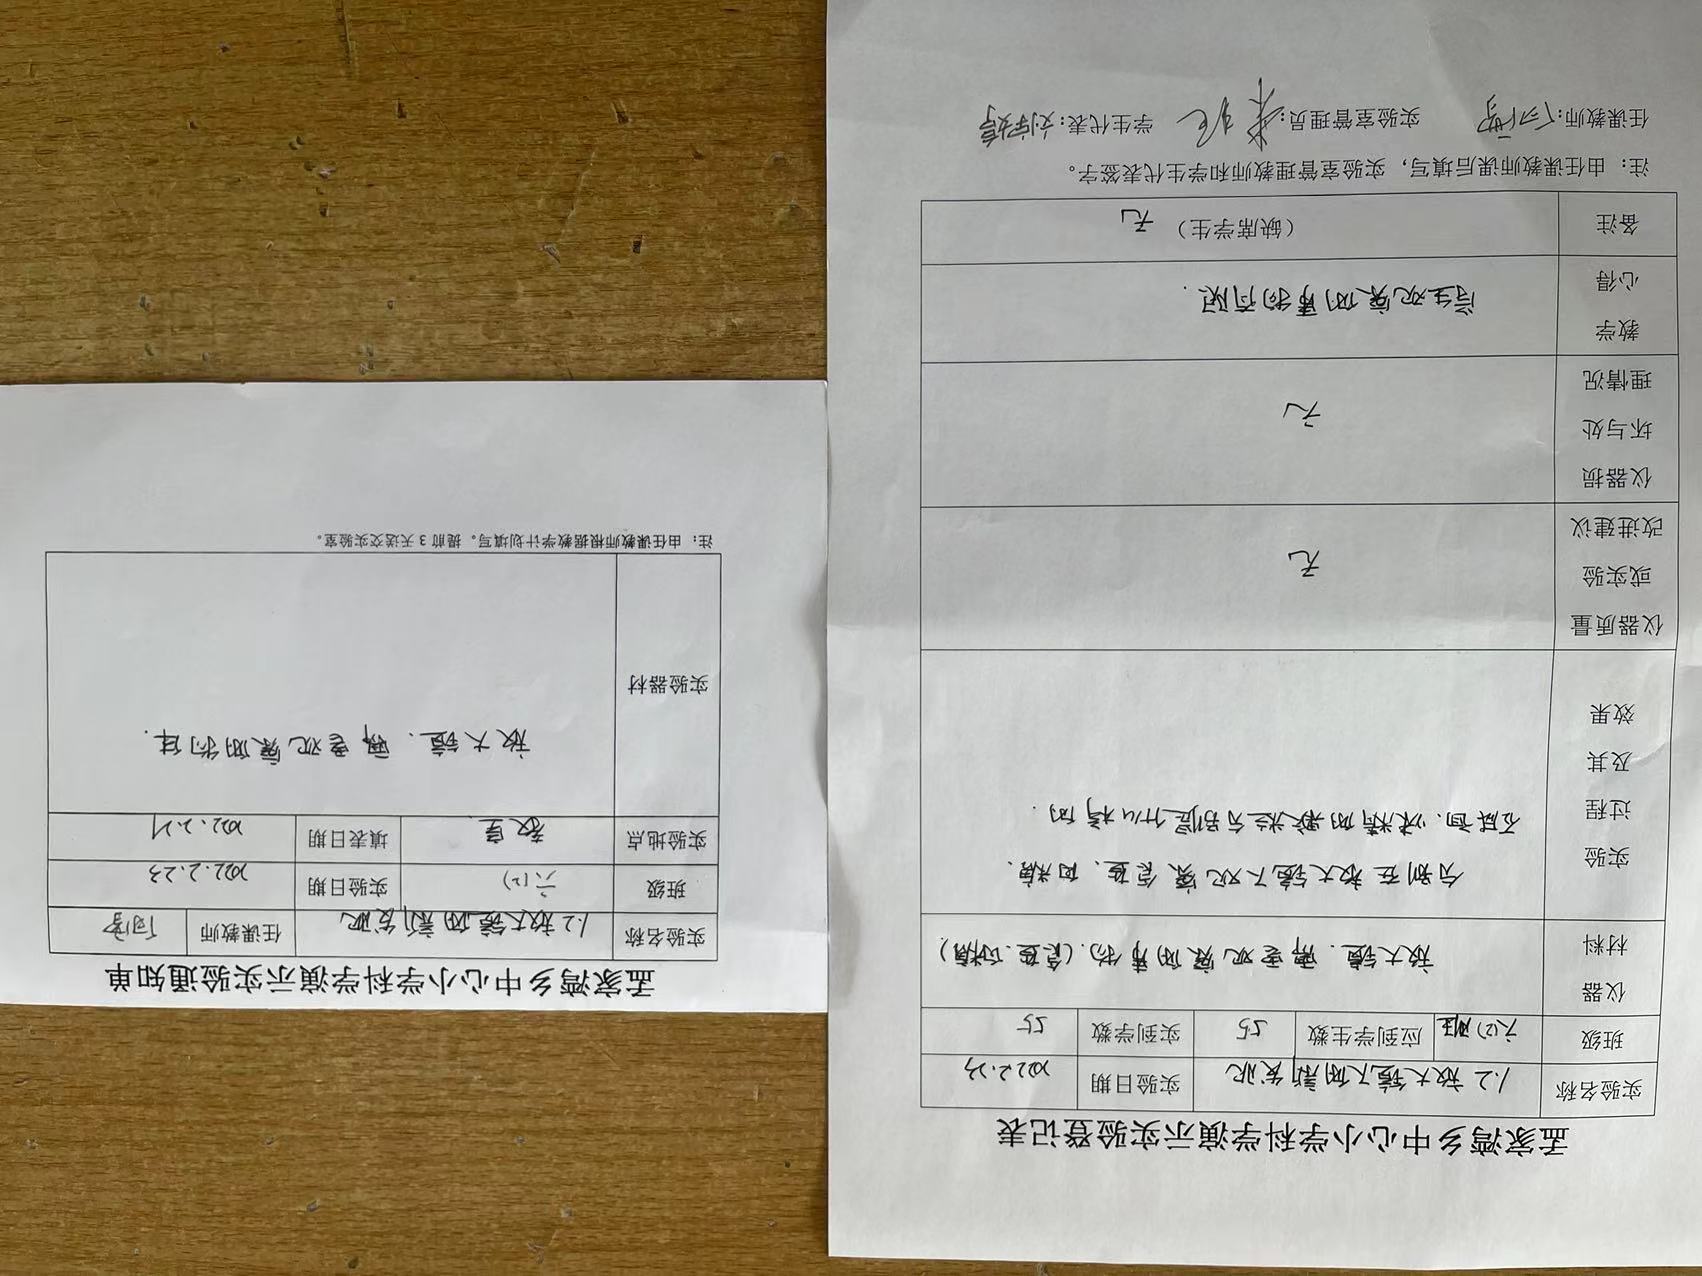 孟家湾乡中心小学科学演示实验登记表
实验名称 1.2放大镜下的新发现 实验日期 2022.2.23
班级 六(2)班 应到学生数 55 实到学数 55
仪器材料 放大镜、需要观察的事物.(食盐、白糖)
实验过程及其效果 分别在放大镜下观察食盐、白糖、
石碱面、味精的颗粒分别是什么样的.
仪器质量或实验改进建议 无
仪器损坏与处理情况 无
教学心得 学生观察的事物有限.
备注 (缺席学生) 无
注：由任课教师课后填写，实验室管理教师和学生代表签字。
任课教师: 实验室管理员: 学生代表:刘宇婷
孟家湾乡中心小学科学演示实验通知单
实验名称 1.2放大镜的新发现 任课教师
班级 六(2) 实验日期 2022.2.23
实验地点 教室 填表日期 2022.2.21
实验器材 放大镜、需要观察的物体.
注：由任课教师根据教学计划填写。提前 3 天送交实验室。